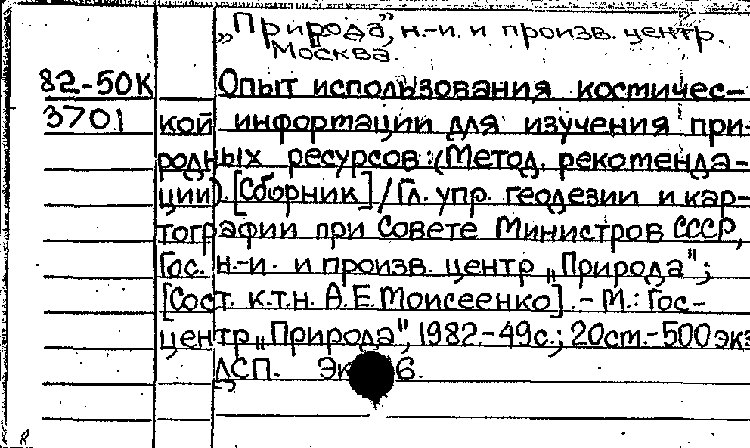 „Природа", н.-и. и произв. центр.
Москва.
82-50К Опыт использования космичес-
3701 кой информации для изучения при-
родных ресурсов: (Метод. рекоменда-
ции). [Сборник] / Гл. упр. геодезии и кар-
тографии при Совете Министров СССР,
Гос. н.-и. и произв. центр „Природа";
[Сост. к.т.н. А.Е. Моисеенко]. - М.: Гос-
центр „Природа", 1982.-49с.; 20см.-500экз
ДСП. 6.